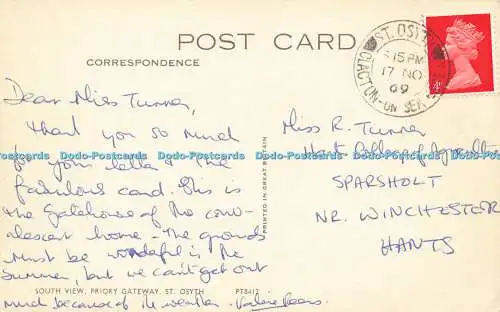 POST CARD
CORRESPONDENCE
Dear Miss Turner,
thank you so much
for your letter & the
fabulous card. This is
the Gatehouse of the conv-
alescent home. The grounds
must be wonderful in the
summer, but we can't get out
much because of the weather.
SOUTH VIEW, PRIORY GATEWAY, ST. OSYTH PT8417
PRINTED IN GREAT BRITAIN
ST. OSYTH
5 15 PM
17 NO
69
CLACTON-ON-SEA
4d
Miss R. Turner
Hants College of
SPARSHOLT
NR. WINCHESTER
HANTS
Dodo-Postcards Dodo-Postcards Dodo-Postcards Dodo-Postcards Dodo-Postcards